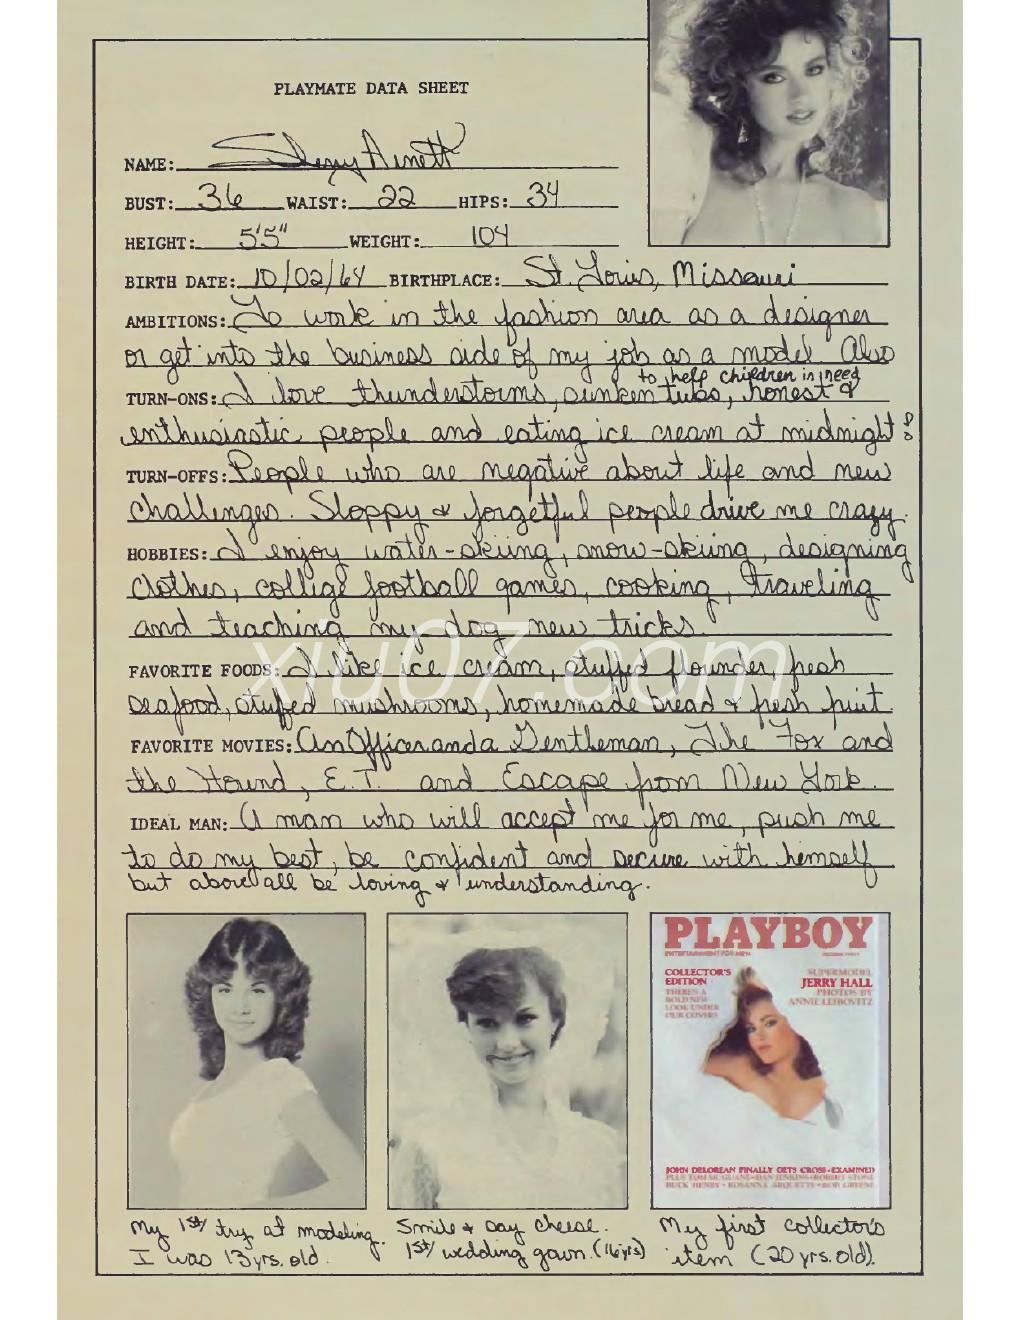 PLAYMATE DATA SHEET
NAME: Sherry Arnett
BUST: 36 WAIST: 22 HIPS: 34
HEIGHT: 5'5" WEIGHT: 104
BIRTH DATE: 10/02/64 BIRTHPLACE: St. Louis, Missouri
AMBITIONS: To work in the fashion area as a designer
or get into the business side of my job as a model. Also
to help children in need
TURN-ONS: I love thunderstorms, sunken tubs, honest &
enthusiastic people and eating ice cream at midnight!
TURN-OFFS: People who are negative about life and new
challenges. Sloppy & forgetful people drive me crazy.
HOBBIES: I enjoy water-skiing, snow-skiing, designing
clothes, college football games, cooking, traveling
and teaching my dog new tricks.
xiu07.com
FAVORITE FOODS: I like ice cream, stuffed flounder, fresh
seafood, stuffed mushrooms, homemade bread & fresh fruit.
FAVORITE MOVIES: An Officer and a Gentleman, The Fox and
the Hound, E.T. and Escape from New York.
IDEAL MAN: A man who will accept me for me, push me
to do my best, be confident and secure with himself
but above all be loving & understanding.
PLAYBOY
ENTERTAINMENT FOR MEN
COLLECTOR'S
EDITION
THERE'S A
BOLD NEW
LOOK UNDER
OUR COVERS
SUPERMODEL
JERRY HALL
PHOTOS BY
ANNIE LEIBOVITZ
JOHN DELOREAN FINALLY GETS CROSS-EXAMINED
PLUS TOM MCGUANE • DAN JENKINS • ROBERT STONE
BUCK HENRY • ROSANNA ARQUETTE • BOB GREENE
My 1st try at modeling.
I was 13 yrs. old.
Smile & say cheese.
1st wedding gown. (16 yrs)
My first collector's
item (20 yrs. old).